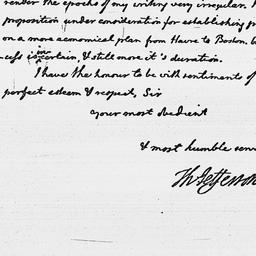 render the epochs of my writing very irregular. I
proposition under consideration for establishing
on a more œconomical plan from Havre to Boston. b
cess is uncertain, & still more it's duration.
I have the honour to be with sentiments of
perfect esteem & respect, Sir
your most obedient
& most humble serv
Th: Jefferson